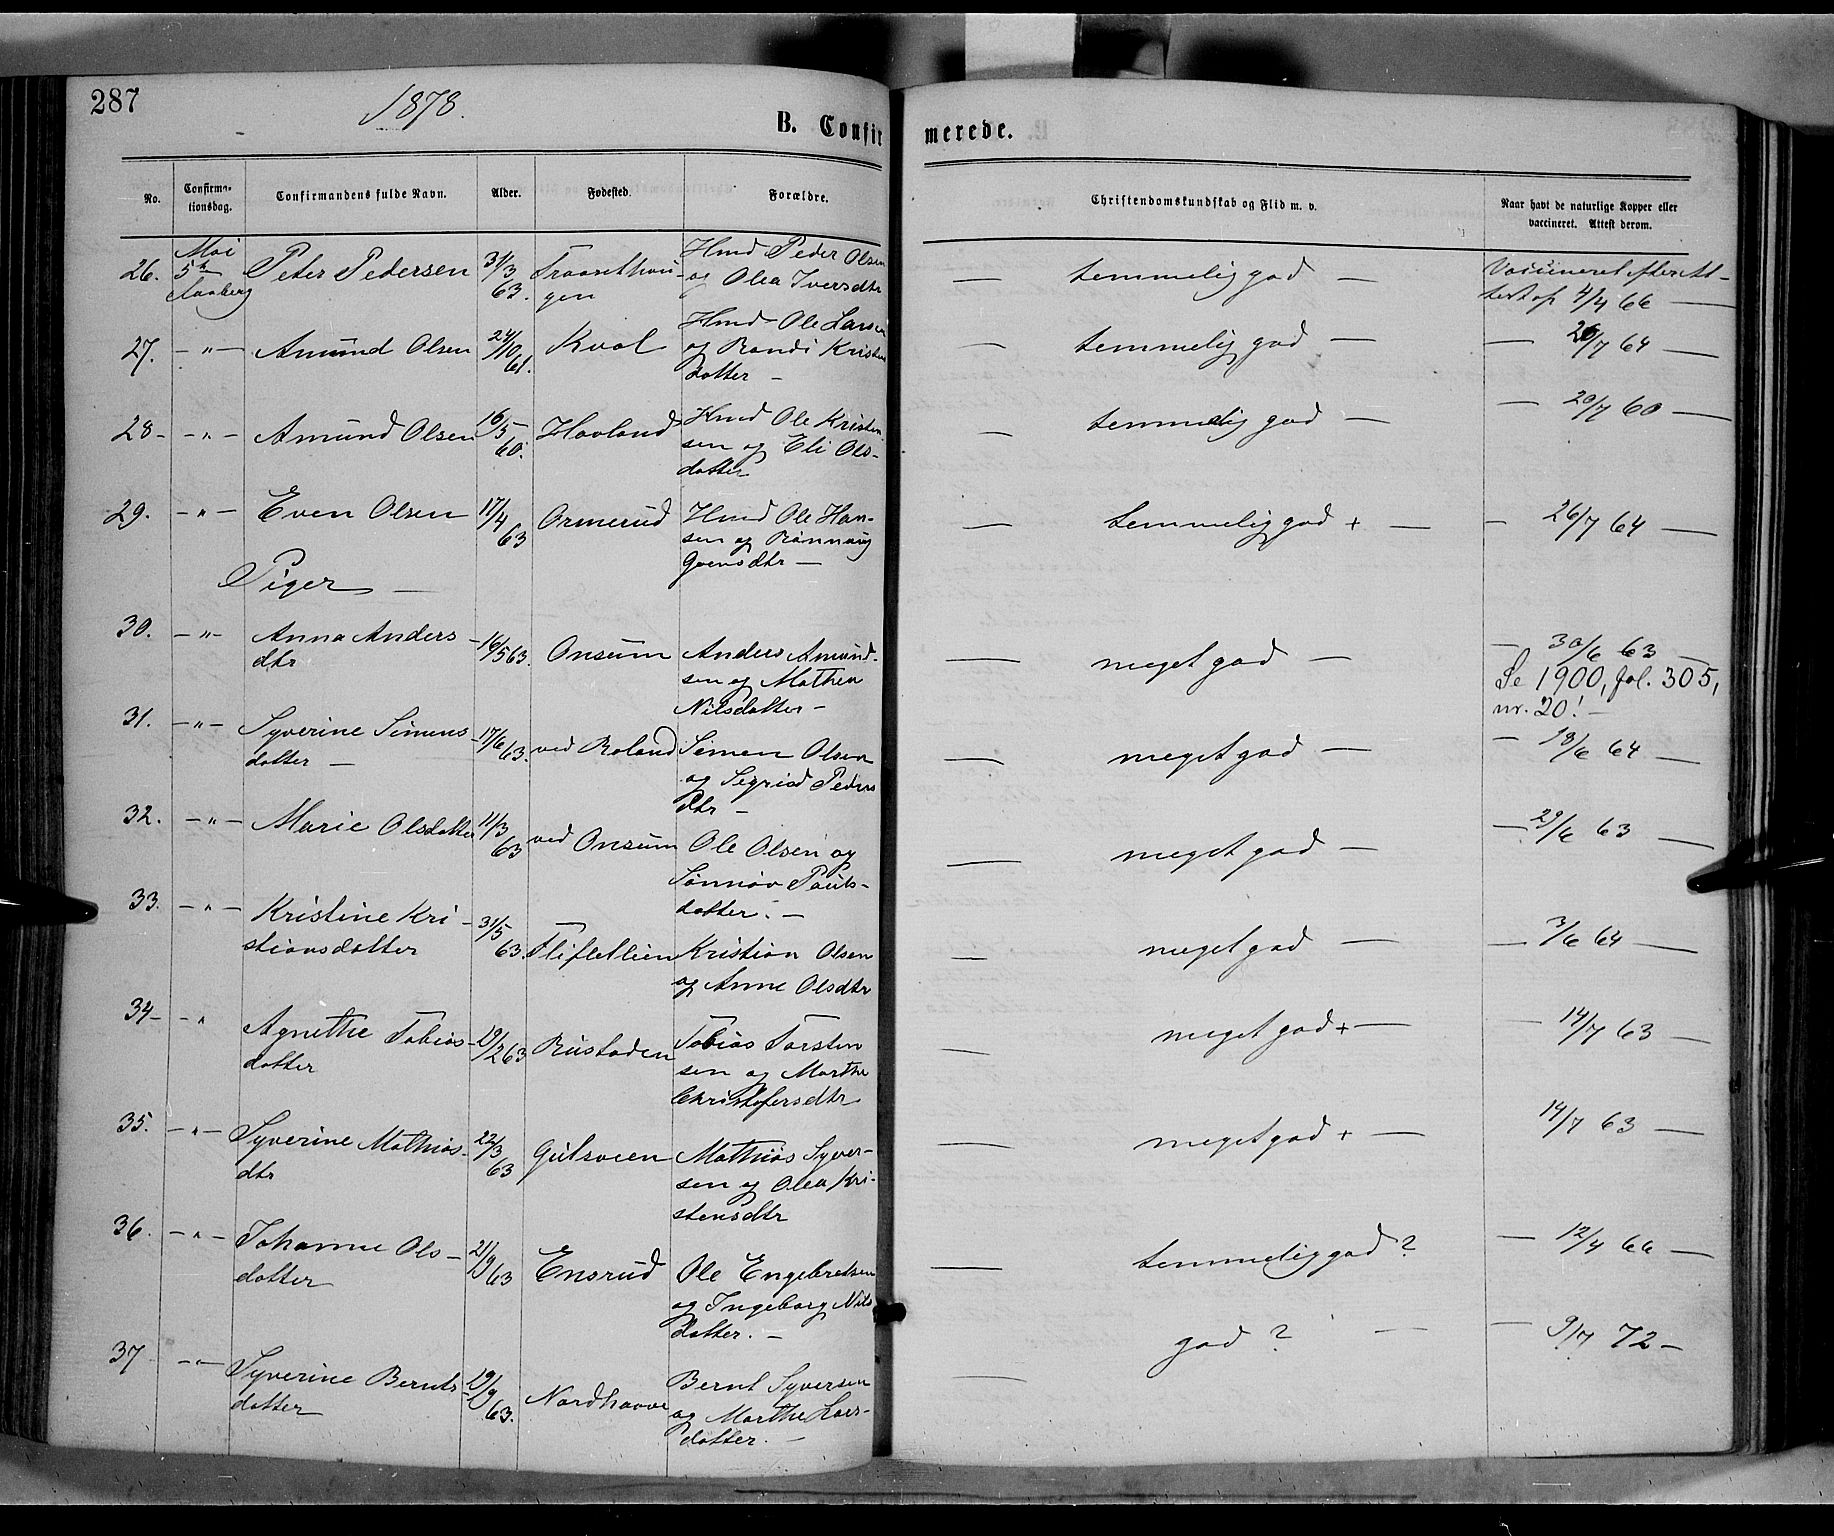 287
1878.
B. Confirmerede.
No. Confirmationsdag. Confirmandens fulde Navn. Alder. Fødested. Forældre. Christendomskundskab og Flid m. v. Naar havt de naturlige Kopper eller vaccineret. Attest derom.
26. Mai 5te Faaberg Peter Pedersen 31/3 63. Hmd Peder Olsen og Olea Iversdtr — temmelig god — Vaccineret efter Attest af 4/4 66 —
27. — " — Amund Olsen 24/10 61. Kval Hmd Ole Larsen og Randi Kristensdatter — — temmelig god — — 26/7 64 —
28 — — " — Amund Olsen 16/5 60. Havland Hmd Ole Kristensen og Eli Olsdatter — temmelig god — — 20/7 60 —
29. — " — Even Olsen 17/4 63 Ormerud Hmd Ole Hansen og Rönnaug — — temmelig god + — — 26/7 64 —
Piger —
30. — " — Anna Andersdtr 16/5 63. Onsum Anders Amundsen og Mathea Nilsdatter — — meget god — — 30/6 63 —
Se 1900, fol. 305,
nr. 20! —
31. — " — Syverine Simensdatter — 17/6 63. ved Roland Simen Olsen og Sigrid Pedersdtr — — meget god — — 18/6 64 —
32. — " — Marie Olsdatter 11/3 63 ved Onsum Ole Olsen og Sönnöv Paulsdatter. — — meget god — — 29/6 63 —
33. — " — Kristine Kristiansdatter 31/5 63. Kristian Olsen og Anne Olsdtr — meget god — — 3/6 64 —
34 — — " Agnethe Tobiasdatter 63 Rustaden Tobias Torstensen og Marthe Christofersdtr — meget god + — — 14/7 63 —
35. — " — Syverine Mathiasdtr 22/3 63 Mathias Syversen og Olea Kristensdtr — meget god + — 14/7 63 —
36. — " — Johanne Olsdatter 21/9 63 Ensrud Ole Engebretsen og Ingeborg Nilsdatter. — — temmelig god ? — 12/4 66 —
37 — " — Syverine Berntsdatter 29/9 63. Nordhaave Bernt Syversen og Marthe Larsdatter. — — god ? — — 9/7 72 —